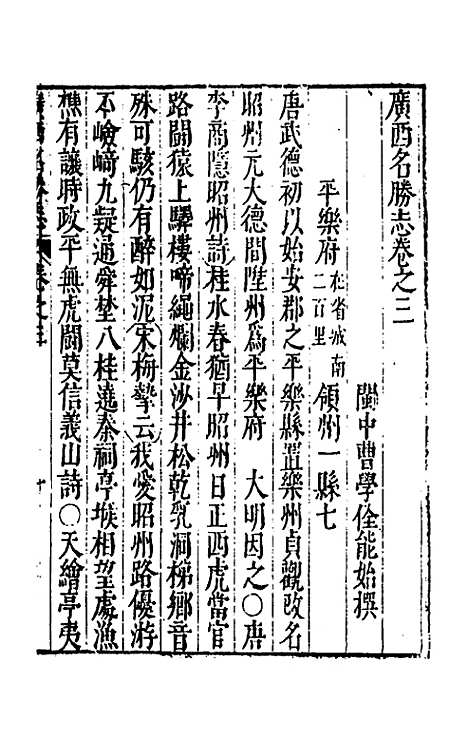 廣西名勝志卷之三
閩中曹學佺能始撰
平樂府在省城南二百里領州一縣七
唐武德初以始安郡之平樂縣置樂州貞觀改名
昭州元大德間陞州爲平樂府　大明因之○唐
李商隱昭州詩桂水春猶早昭州日正西虎當官
路鬭猿上驛樓啼繩爛金沙井松乾乳洞梯鄉音
殊可駭仍有醉如泥宋梅摯云我愛昭州路優游
不嶮﨑九疑通舜埜八桂遶秦祠亭堠相望處漁
樵有讓時政平無虎鬭莫信義山詩○天繪亭夷